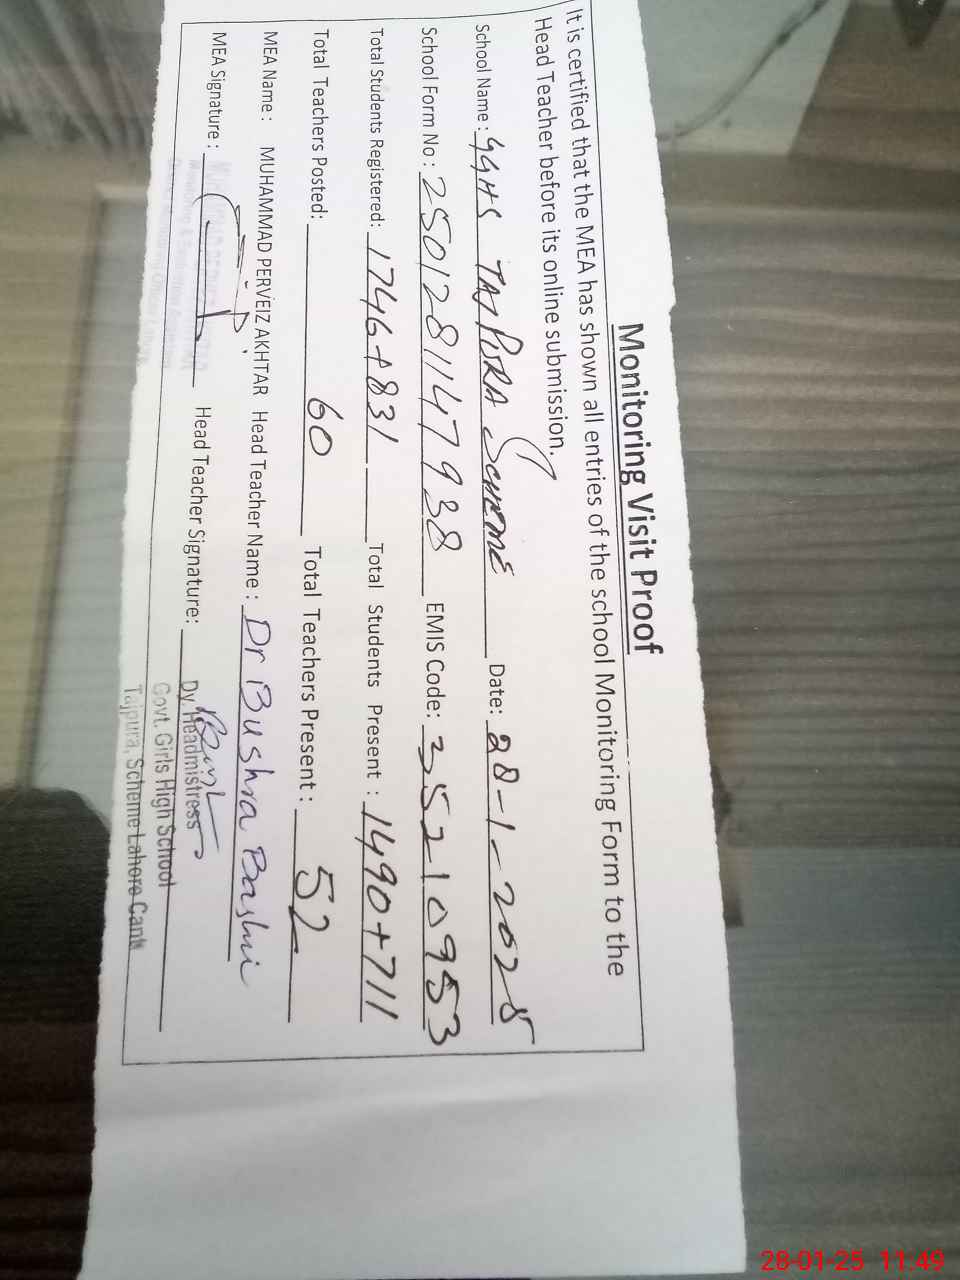 Monitoring Visit Proof
It is certified that the MEA has shown all entries of the school Monitoring Form to the
Head Teacher before its online submission.
School Name: GGHS TAJPURA SCHEME Date: 28-1-2025
School Form No: 2501281147938 EMIS Code: 35210953
Total Students Registered: 1746+831 Total Students Present: 1490+711
Total Teachers Posted: 60 Total Teachers Present: 52
MEA Name: MUHAMMAD PERVEIZ AKHTAR Head Teacher Name: Dr Bushra Bashir
MEA Signature: Head Teacher Signature:
Dy. Headmistress
Govt. Girls High School
Tajpura, Scheme Lahore Cantt
28-01-25 11:49